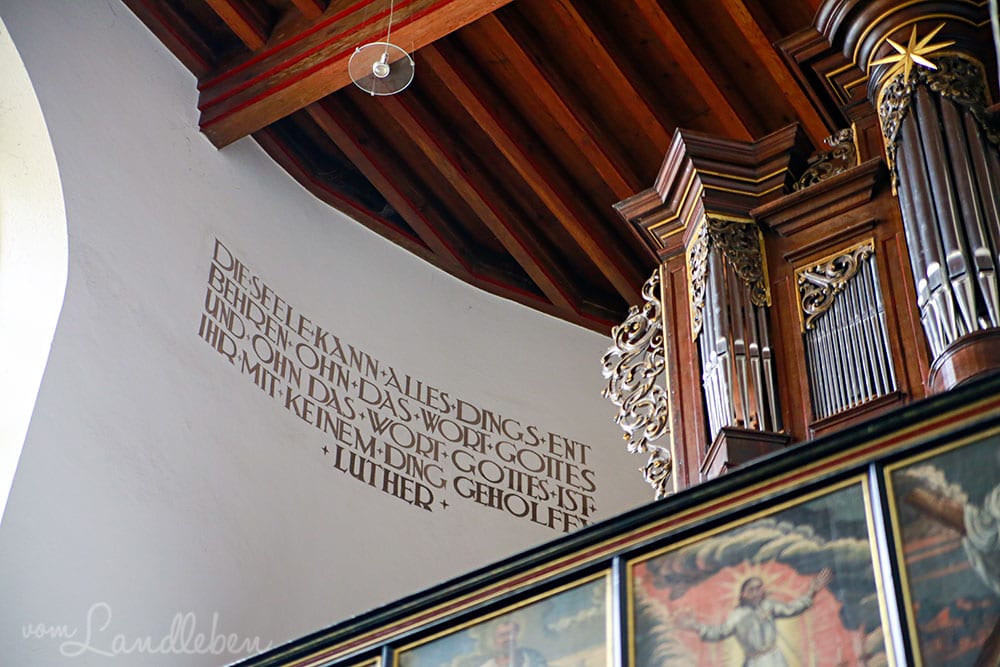 DIE·SEELE·KANN·ALLES·DINGS·ENT
BEHREN·OHN·DAS·WORT·GOTTES
UND·OHN DAS·WORT·GOTTES·IST·
IHR·MIT·KEINEM·DING GEHOLFFEN
·LUTHER·
vom Landleben